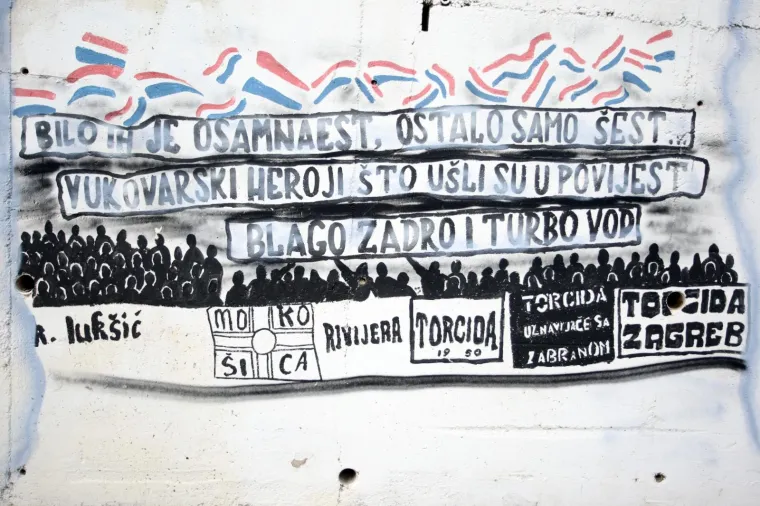 BILO IH JE OSAMNAEST, OSTALO SAMO ŠEST...
VUKOVARSKI HEROJI ŠTO UŠLI SU U POVIJEST
BLAGO ZADRO I TURBO VOD
R. lukšić
MO KO
ŠI CA
RIVIJERA
TORCIDA
1950
TORCIDA
UZ NAVIJAČE SA
ZABRANOM
TORCIDA
ZAGREB